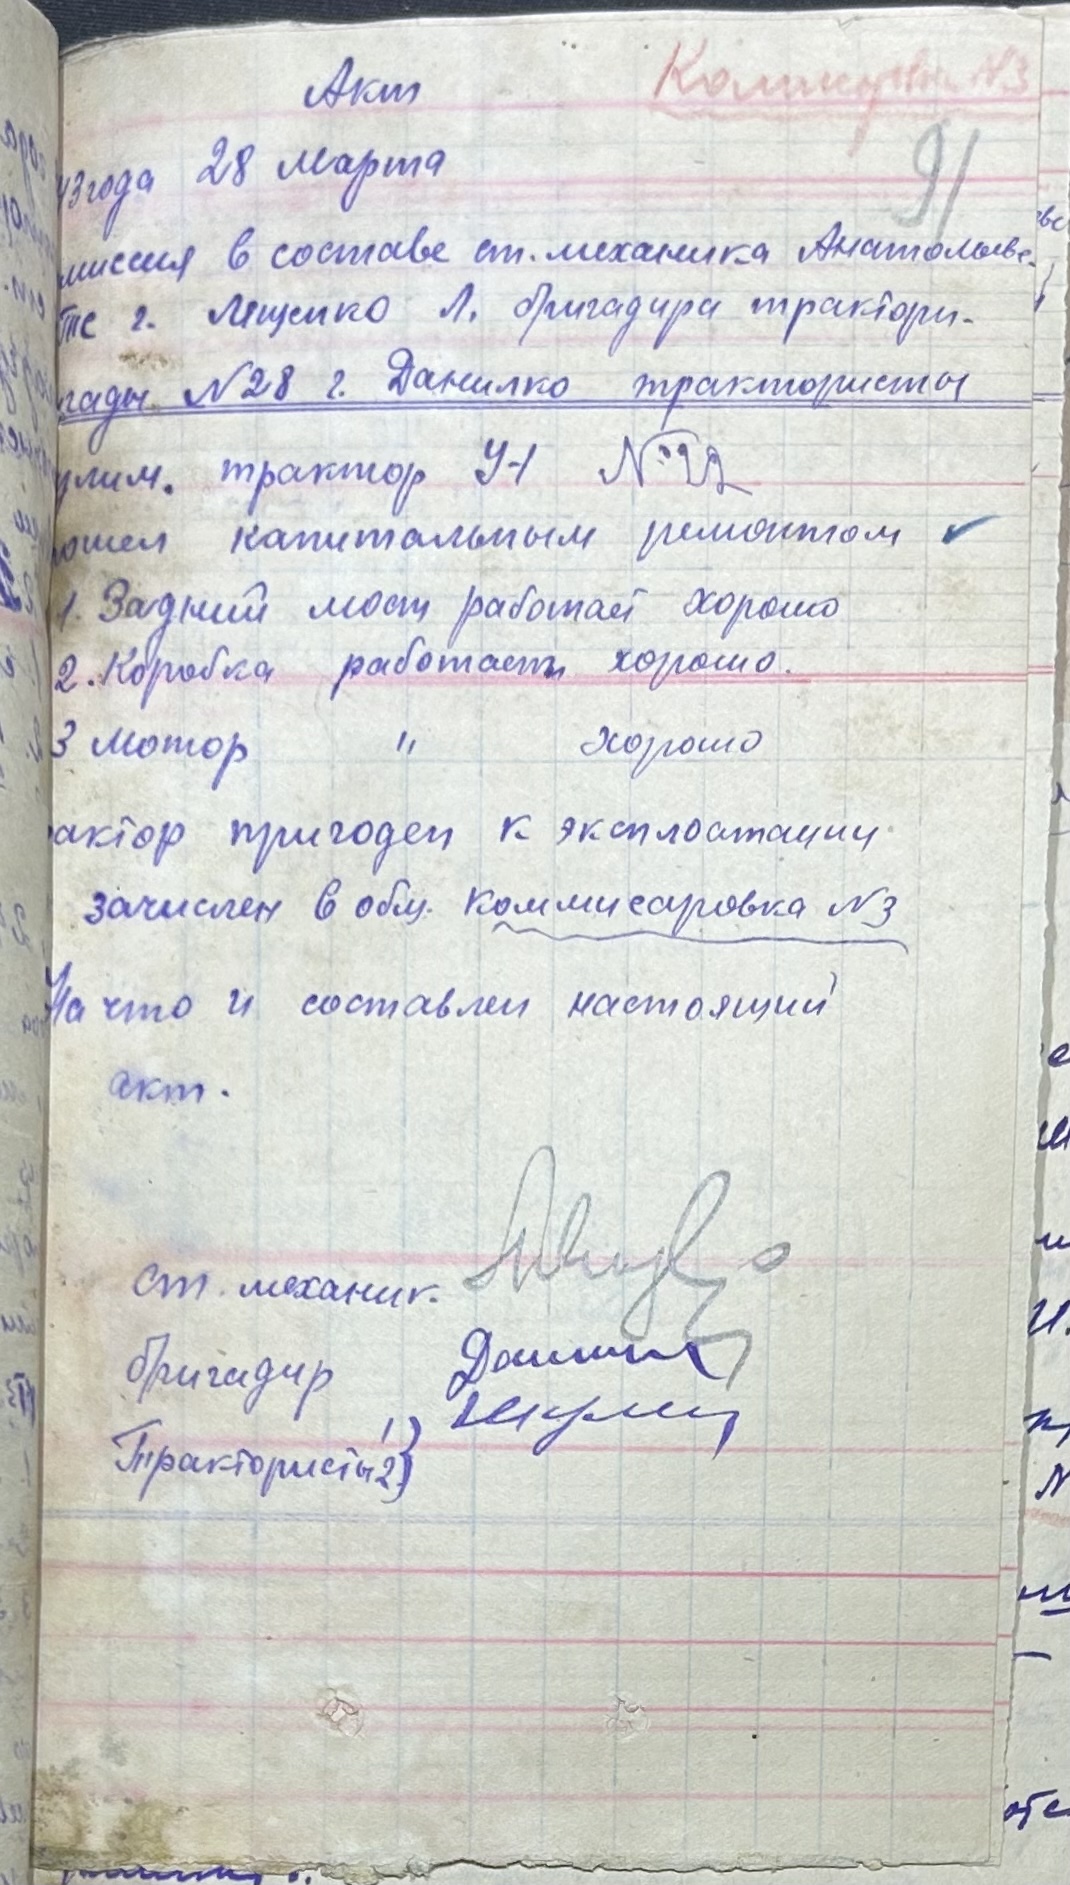 Акт
91
43 года 28 марта
миссия в составе ст. механика Анатольеве-
тс г. Ищенко Л. бригадира трактори-
гады N28 г. Данилко трактористы
трактор У-1 N 22
ошел капитальным ремонтом ✓
1. Задний мост работает хорошо
2. Коробка работает хорошо.
3 Мотор " хорошо
актор пригоден к эксплоатации
зачислен в общ. Коммисаровка N3
На что и составлен настоящий
акт.
ст. механик.
бригадир
Трактористы 1) 2)